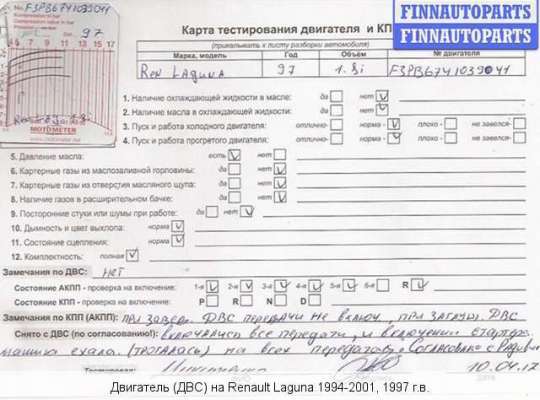 № F3PB6741039041
FINNAUTOPARTS
FINNAUTOPARTS
97
MOTOMETER
Карта тестирования двигателя и КП
(прикалывать к листу разборки автомобиля)
Марка, модель Год Объём № двигателя
Ren Laguna 97 1.8i F3PB6741039041
1. Наличие охлаждающей жидкости в масле: да нет
2. Наличие масла в охлаждающей жидкости: да нет
3. Пуск и работа холодного двигателя: отлично- норма - плохо - не завелся-
4. Пуск и работа прогретого двигателя: отлично- норма - плохо - не завелся-
5. Давление масла: есть нет
6. Картерные газы из маслозаливной горловины: да нет
7. Картерные газы из отверстия масляного щупа: да нет
8. Наличие газов в расширительном бачке: да нет
9. Посторонние стуки или шумы при работе: да нет
10. Дымность и цвет выхлопа: норма
11. Состояние сцепления: норма
12. Комплектность: полная
Замечания по ДВС: нет
Состояние АКПП - проверка на включение: 1-я 2-я 3-я 4-я 5-я 6-я R
Состояние КПП - проверка на включение: P R N D
Замечания по КПП (АКПП): при завед. ДВС передачи не включ, при заглуш. ДВС
Снято с ДВС (по согласованию!): включались все передачи, и включении стартера
машина ехала. (трогалась) на всех передачах. Согласовано с
Тестировал: 10.04.17
Двигатель (ДВС) на Renault Laguna 1994-2001, 1997 г.в.